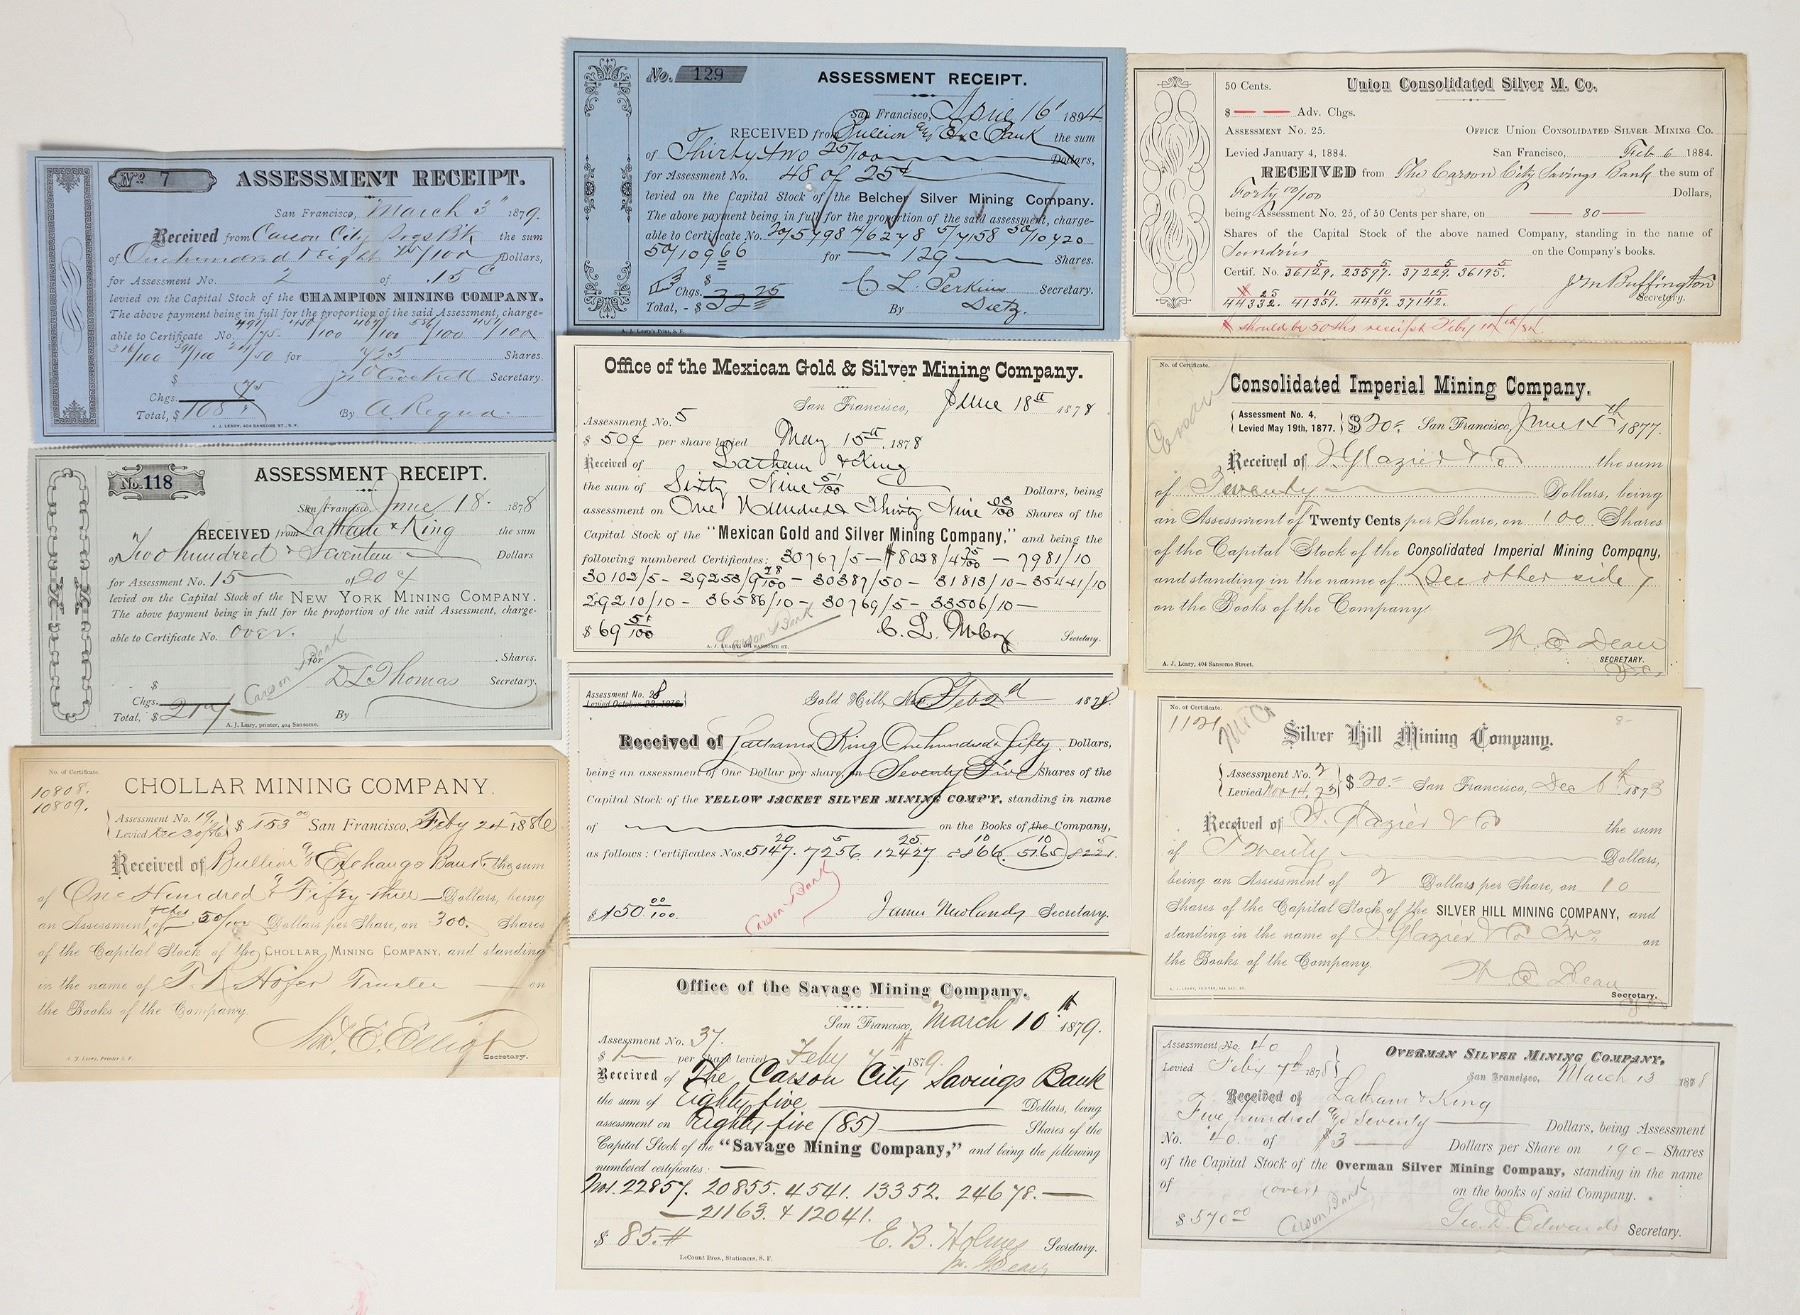 No. 7 ASSESSMENT RECEIPT.
San Francisco, March 3" 1879.
Received from Carson City Svgs Bk the sum
of One hundred & Eight 75/100 Dollars,
for Assessment No. 2 of .15 c
levied on the Capital Stock of the CHAMPION MINING COMPANY.
The above payment being in full for the proportion of the said Assessment, charge-
able to Certificate No.
for 725 Shares.
$
Secretary.
Chgs.
Total, $ 108.75
By A. Requa.
A. J. LEARY, 404 SANSOME ST., S. F.
No. 118 ASSESSMENT RECEIPT.
San Francisco, June 18. 1878
RECEIVED from Latham & King the sum
of Two hundred & Seventeen Dollars
for Assessment No. 15 of 20 c
levied on the Capital Stock of the NEW YORK MINING COMPANY.
The above payment being in full for the proportion of the said Assessment, charge-
able to Certificate No. over.
Carson S Bank
for Shares.
$
D L Thomas Secretary.
Chgs.
Total, $ 217
By
A. J. Leary, printer, 404 Sansome.
No. of Certificate.
10808.
10809.
CHOLLAR MINING COMPANY.
Assessment No. 19
Levied Dec 30/86
$ 153.00 San Francisco, Feby 24 1886
Received of Bullion & Exchange Bank the sum
of One Hundred & Fifty three Dollars, being
an Assessment of 50/100 Dollars per Share, on 300. Shares
of the Capital Stock of the CHOLLAR MINING COMPANY, and standing
in the name of T. R. Hofer Trustee on
the Books of the Company.
Chas. E. Elliot
Secretary.
A. J. Leary, Printer S. F.
No. 129 ASSESSMENT RECEIPT.
San Francisco, April 16" 1894
RECEIVED from Bullion & Exc Bank the sum
of Thirty two 25/100 Dollars,
for Assessment No. 48 of 25 c
levied on the Capital Stock of the Belcher Silver Mining Company.
The above payment being in full for the proportion of the said assessment, charge-
able to Certificate No. 20/5798 4/6278 5/7158 50/10720
50/10966 for 129 Shares.
$
Chgs.
C L Perkins Secretary.
Total, - $ 32 25
By Dietz.
A. J. Leary's Print, S. F.
Office of the Mexican Gold & Silver Mining Company.
San Francisco, June 18th 1878
Assessment No. 5
$ 50¢ per share levied May 15th. 1878
Received of Latham & King
the sum of Sixty Nine 51/100 Dollars, being
assessment on One Hundred Thirty Nine 03/100 Shares of the
Capital Stock of the "Mexican Gold and Silver Mining Company," and being the
following numbered Certificates: 30767/5 - 8028/4 75/100 - 7981/10
30102/5 - 29253/9 28/100 - 30387/50 - 31813/10 - 35441/10
29210/10 - 36586/10 - 30769/5 - 33506/10 -
$ 69 51/100
Carson S Bank
C. L. McCoy Secretary.
A. J. LEARY, 404 SANSOME ST.
Assessment No. 28
Levied October 29, 1875
Gold Hill, Nev. Feb 2nd 1878
Received of Latham & King One hundred & fifty Dollars,
being an assessment of One Dollar per share, on Seventy Five Shares of the
Capital Stock of the YELLOW JACKET SILVER MINING COMP'Y. standing in name
of on the Books of the Company,
as follows: Certificates Nos. 5147. 7256. 12427 8866. 5165 8221.
20 5 25 10 10 5
Carson Bank
$ 150 00/100.
James Newlands Secretary.
Office of the Savage Mining Company.
San Francisco, March 10th 1879.
Assessment No. 37.
$ 1 per share levied Feby 1879.
Received of The Carson City Savings Bank
the sum of Eighty five Dollars, being
assessment on Eighty five (85) Shares of the
Capital Stock of the "Savage Mining Company," and being the following
numbered certificates:
Nos. 22857. 20855. 4541. 13352. 24678.
21163. & 12041.
$ 85.
E. B. Holmes Secretary.
LeCount Bros., Stationers, S. F.
50 Cents.
Union Consolidated Silver M. Co.
$ Adv. Chgs.
ASSESSMENT No. 25. OFFICE UNION CONSOLIDATED SILVER MINING CO.
Levied January 4, 1884. San Francisco, Feb 6 1884.
RECEIVED from The Carson City Savings Bank the sum of
Forty 00/100 Dollars,
being Assessment No. 25, of 50 Cents per share, on 80
Shares of the Capital Stock of the above named Company, standing in the name of
Sundries on the Company's books.
Certif. No. 36129. 23597. 37229. 36195.
44332. 41351. 4489. 37142.
J M Buffington
Secretary.
should be 50 shs receipt Feby
No. of Certificate.
Consolidated Imperial Mining Company.
Assessment No. 4.
Levied May 19th, 1877.
$ 20 San Francisco, June 15th 1877.
Received of I. Glazier & Co the sum
of Twenty Dollars, being
an Assessment of Twenty Cents per Share, on 100 Shares
of the Capital Stock of the Consolidated Imperial Mining Company,
and standing in the name of (See other side)
on the Books of the Company.
W. E. Dean
SECRETARY.
A. J. Leary, 404 Sansome Street.
No. of Certificate.
1121
Silver Hill Mining Company.
Assessment No. 2
Levied Nov 14, 73
$ 20 San Francisco, Dec 6th 1873
Received of I. Glazier & Co the sum
of Twenty Dollars,
being an Assessment of 2 Dollars per Share, on 10
Shares of the Capital Stock of the SILVER HILL MINING COMPANY, and
standing in the name of I. Glazier & Co Trs on
the Books of the Company.
W. E. Dean
Secretary.
Assessment No. 40
Levied Feby 7th 1878
OVERMAN SILVER MINING COMPANY.
San Francisco, March 13 1878
Received of Latham & King
Five hundred & Seventy Dollars, being Assessment
No. 40. of $3 Dollars per Share on 190 Shares
of the Capital Stock of the Overman Silver Mining Company, standing in the name
of (over) on the books of said Company.
Carson Bank
$ 570.00
Geo. D. Edwards Secretary.